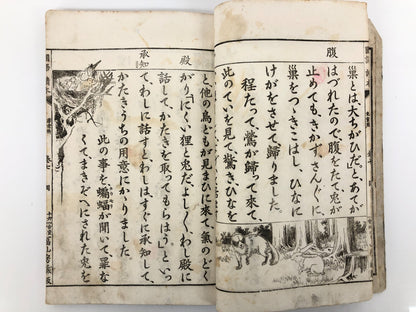 腹
巣とは大ちがひだ」とあてが
はづれたので、腹をたて、兎が
止めてもきかず、さんぐに、
巣をつゝきこはし、ひなに
けがをさせて歸りました。
程たって、鷲が歸って來て、
此のていを見て、驚きひなを
殿
承知
と、他の鳥どもが見まひに來て、「氣のどく
がり、「にくい狸と兎だ。よし〳〵、わし殿に
話して、かたきを取ってもらはう」といっ
て、わしに話すと、わしは、すぐに承知して、
かたきうちの用意にかゝりました。
此の事を、蝙蝠が聞いて、罪な
くて、まきぞへにされた兎を